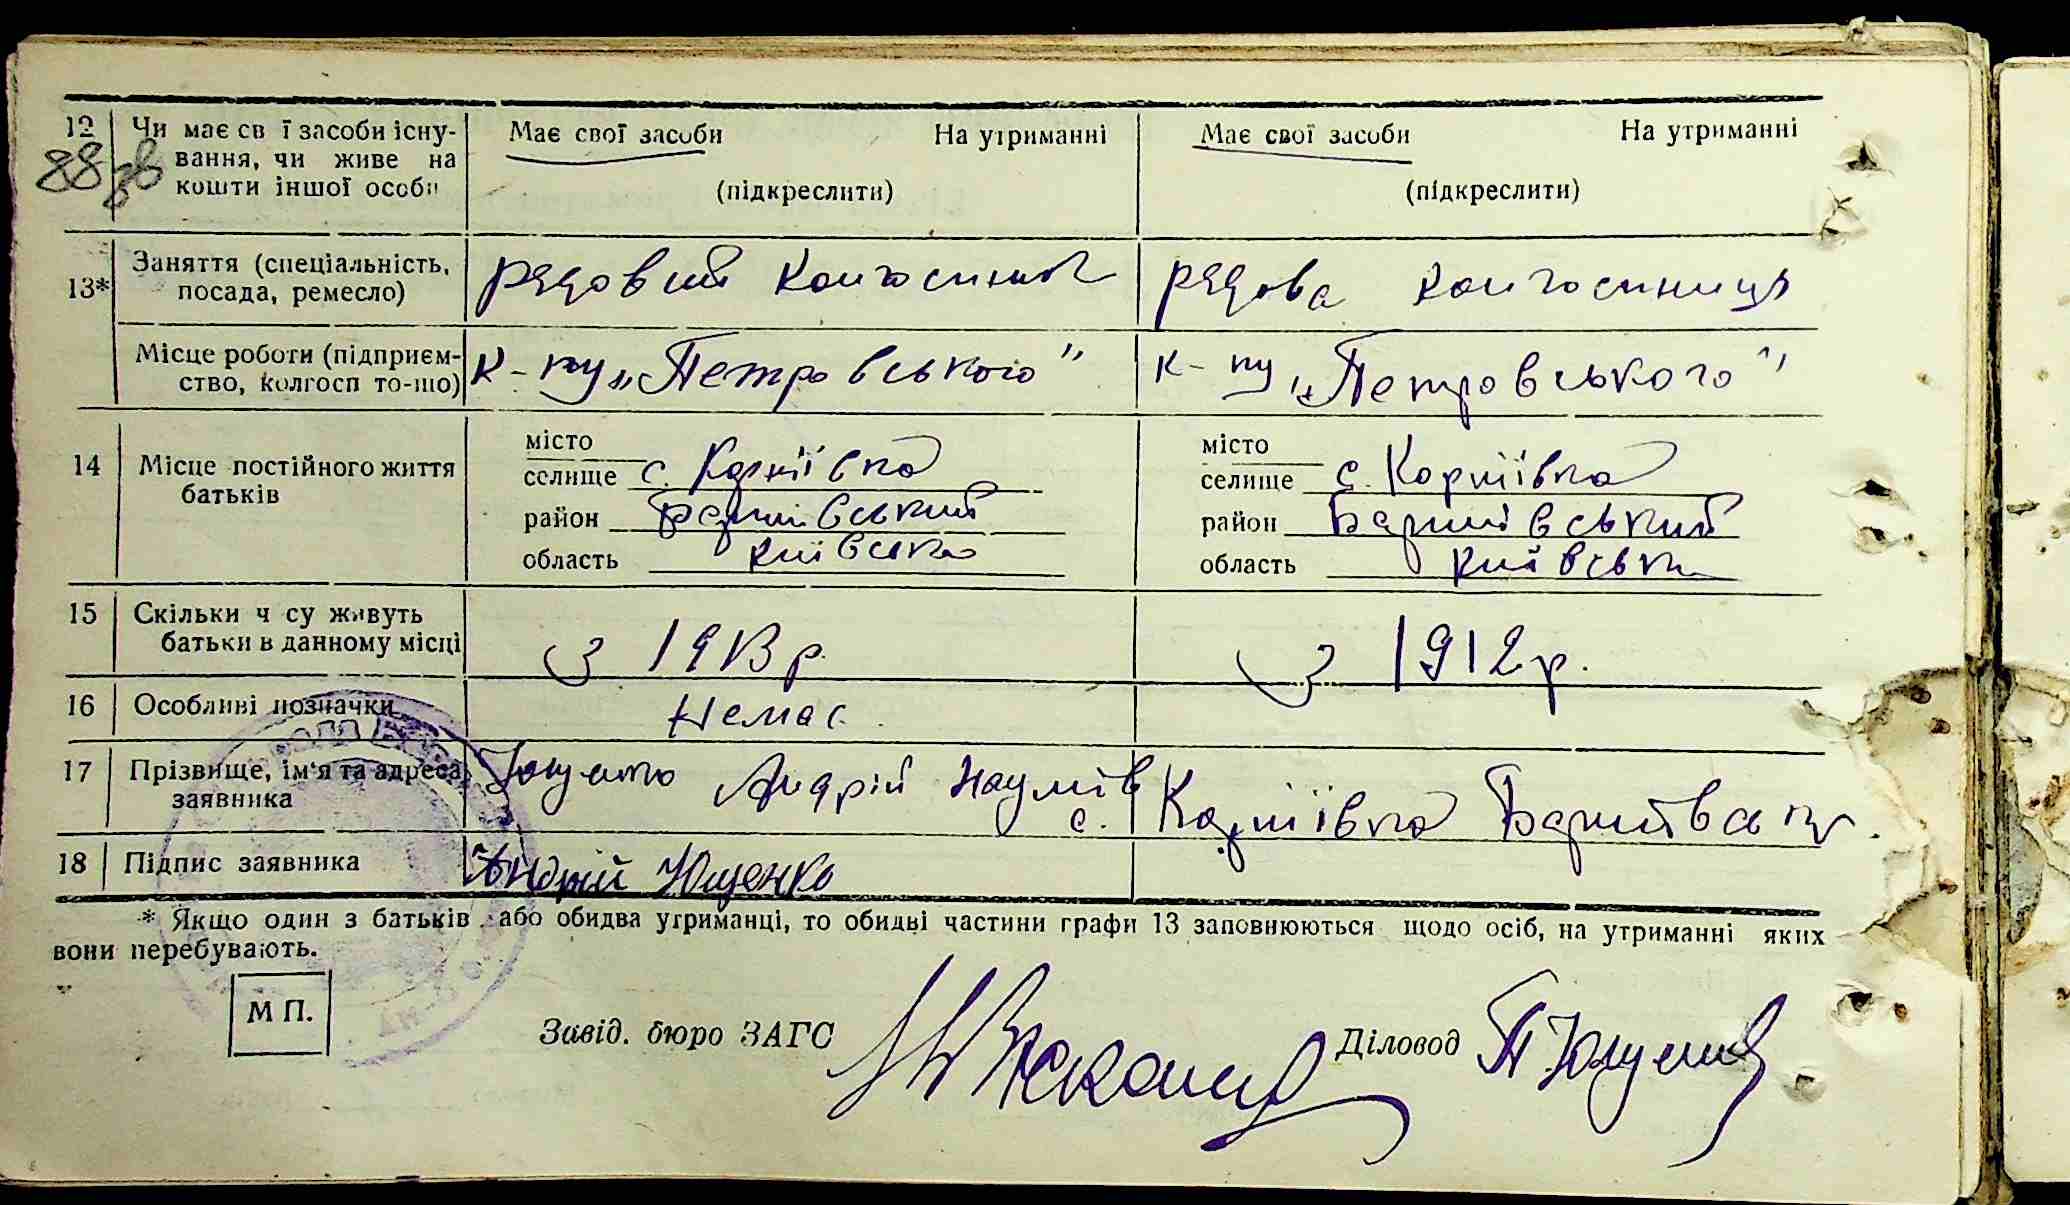 12 Чи має св ї засоби існу- Має свої засоби На утриманні Має свої засоби На утриманні
88 зв вання, чи живе на
кошти іншої особи (підкреслити) (підкреслити)
13* Заняття (спеціальність, посада, ремесло) рядовий колгоспник рядова колгоспниця
Місце роботи (підприєм- к-пу „Петровського" к-пу „Петровського"
ство, колгосп то-що)
14 Місце постійного життя місто місто
батьків селище с. Корніївка селище с. Корніївка
район Баришівський район Баришівський
область Київська область Київська
15 Скільки ч су живуть
батьки в данному місці з 1913 р. з 1912 р.
16 Особливі позначки Немає
17 Прізвище, ім'я та адреса Ющенко Андрій Наумів
заявника с. Корніївка
18 Підпис заявника Андрій Ющенко
* Якщо один з батьків або обидва утриманці, то обидві частини графи 13 заповнюються щодо осіб, на утриманні яких
вони перебувають.
М П.
Завід. бюро ЗАГС Діловод